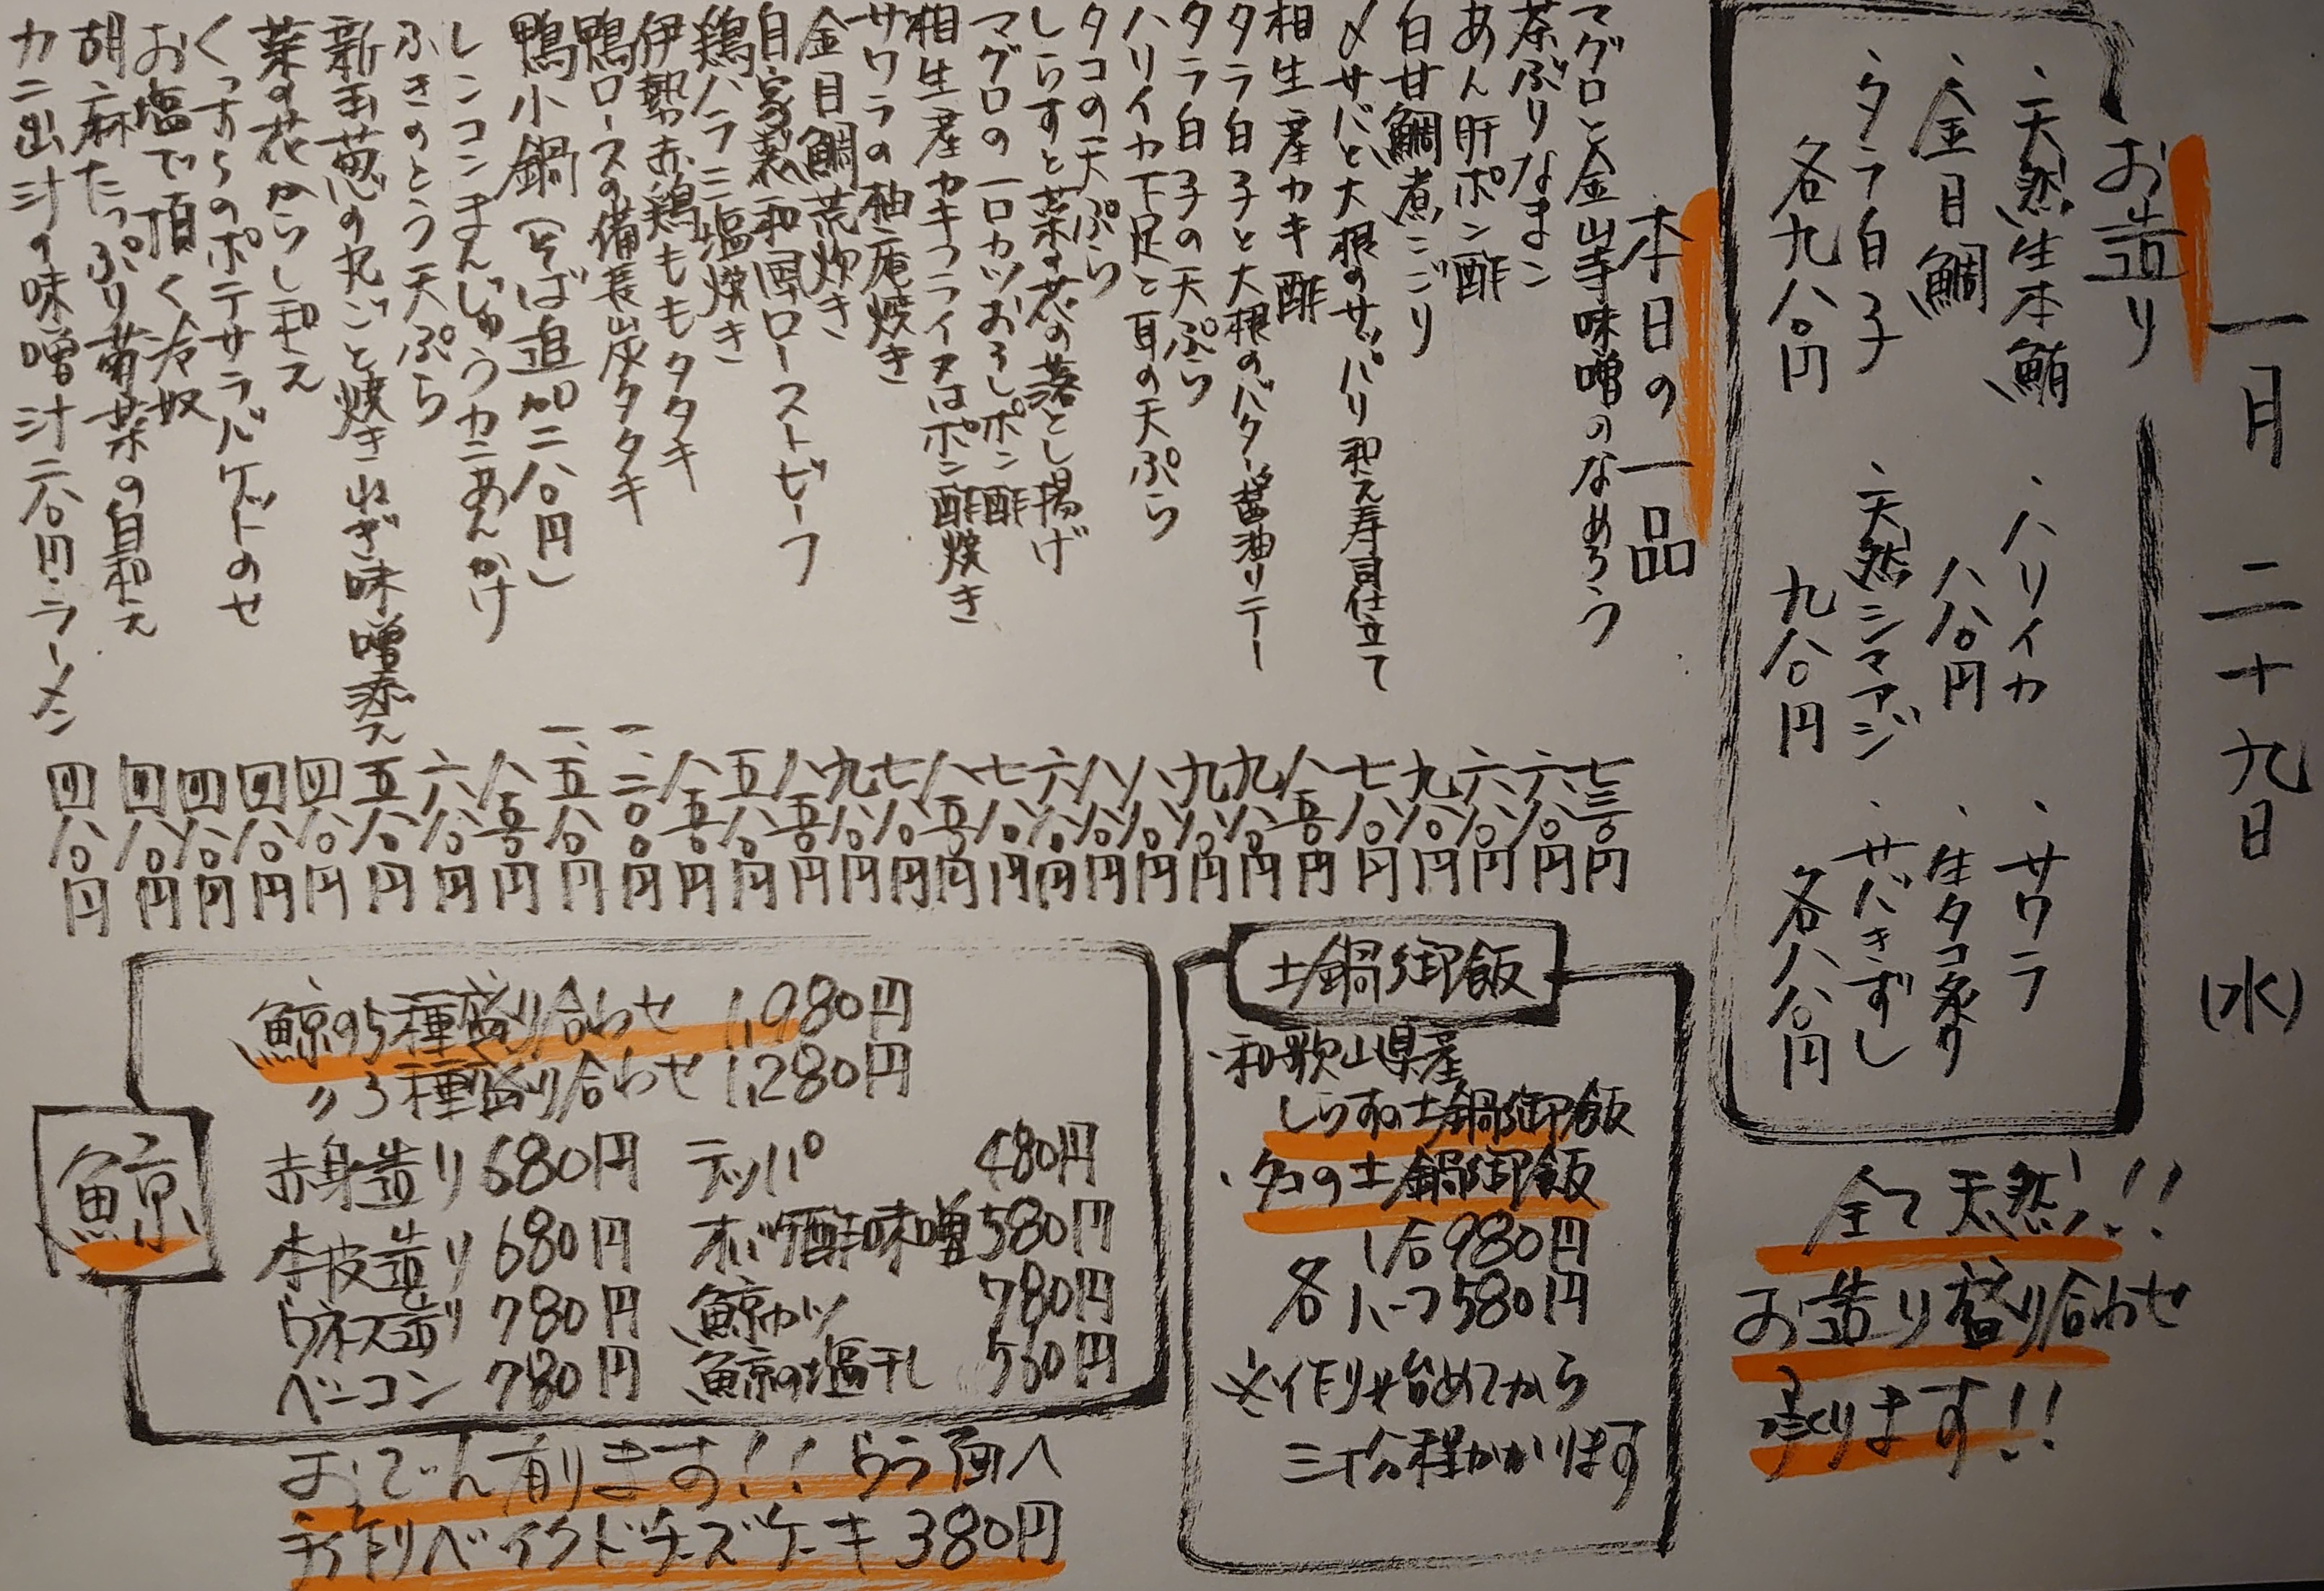 一月二十九日(水)
お造り
・天然生本鮪
・金目鯛
・タラ白子
各九八〇円
・ハリイカ
八八〇円
・天然シマアジ
九八〇円
・サワラ
・生タコ炙り
・サバきずし
各八八〇円
全て天然!!
お造り盛り合わせ
承ります!!
本日の一品
マグロと金山寺味噌のなめろう 七三〇円
茶ぶりなまこ 六八〇円
あん肝ポン酢 六八〇円
白甘鯛煮こごり 九八〇円
〆サバと大根のサッパリ和え寿司仕立て 七八〇円
相生産カキ酢 八五〇円
タラ白子と大根のバター醤油ソテー 九八〇円
タラ白子の天ぷら 九八〇円
ハリイカ下足と耳の天ぷら 八八〇円
タコの天ぷら 八八〇円
しらすと菜の花の落とし揚げ 六八〇円
マグロの一口カツおろしポン酢 七八〇円
相生産カキフライ又はポン酢焼き 八五〇円
サワラの柚庵焼き 七八〇円
金目鯛荒炊き 九八〇円
自家製和風ローストビーフ 八五〇円
鶏ハラミ塩焼き 五八〇円
伊勢赤鶏ももタタキ 八五〇円
鴨ロースの備長炭タタキ 一、二〇〇円
鴨小鍋(そば追加二八〇円) 一、五八〇円
レンコンまんじゅうカニあんかけ 八五〇円
ふきのとう天ぷら 六八〇円
新玉葱の丸ごと焼きねぎ味噌添え 五八〇円
菜の花からし和え 四八〇円
くっすらのポテサラバゲットのせ 四八〇円
お塩で頂く冷奴 四八〇円
胡麻たっぷり菊菜の白和え 四八〇円
カニ出汁の味噌汁二八〇円・ラーメン 四八〇円
土鍋御飯
・和歌山県産
しらすの土鍋御飯
・タコの土鍋御飯
1合980円
各ハーフ580円
※作り始めてから
三十分程かかります
鯨
鯨の5種盛り合わせ 1,980円
〃3種盛り合わせ 1,280円
赤身造り 680円
本皮造り 680円
ウネス造り 780円
ベーコン 780円
テッパ 480円
オバケ酢味噌 580円
鯨カツ 780円
鯨の塩干し 580円
おでん有ります!!ウラ面へ
手作りベイクドチーズケーキ 380円